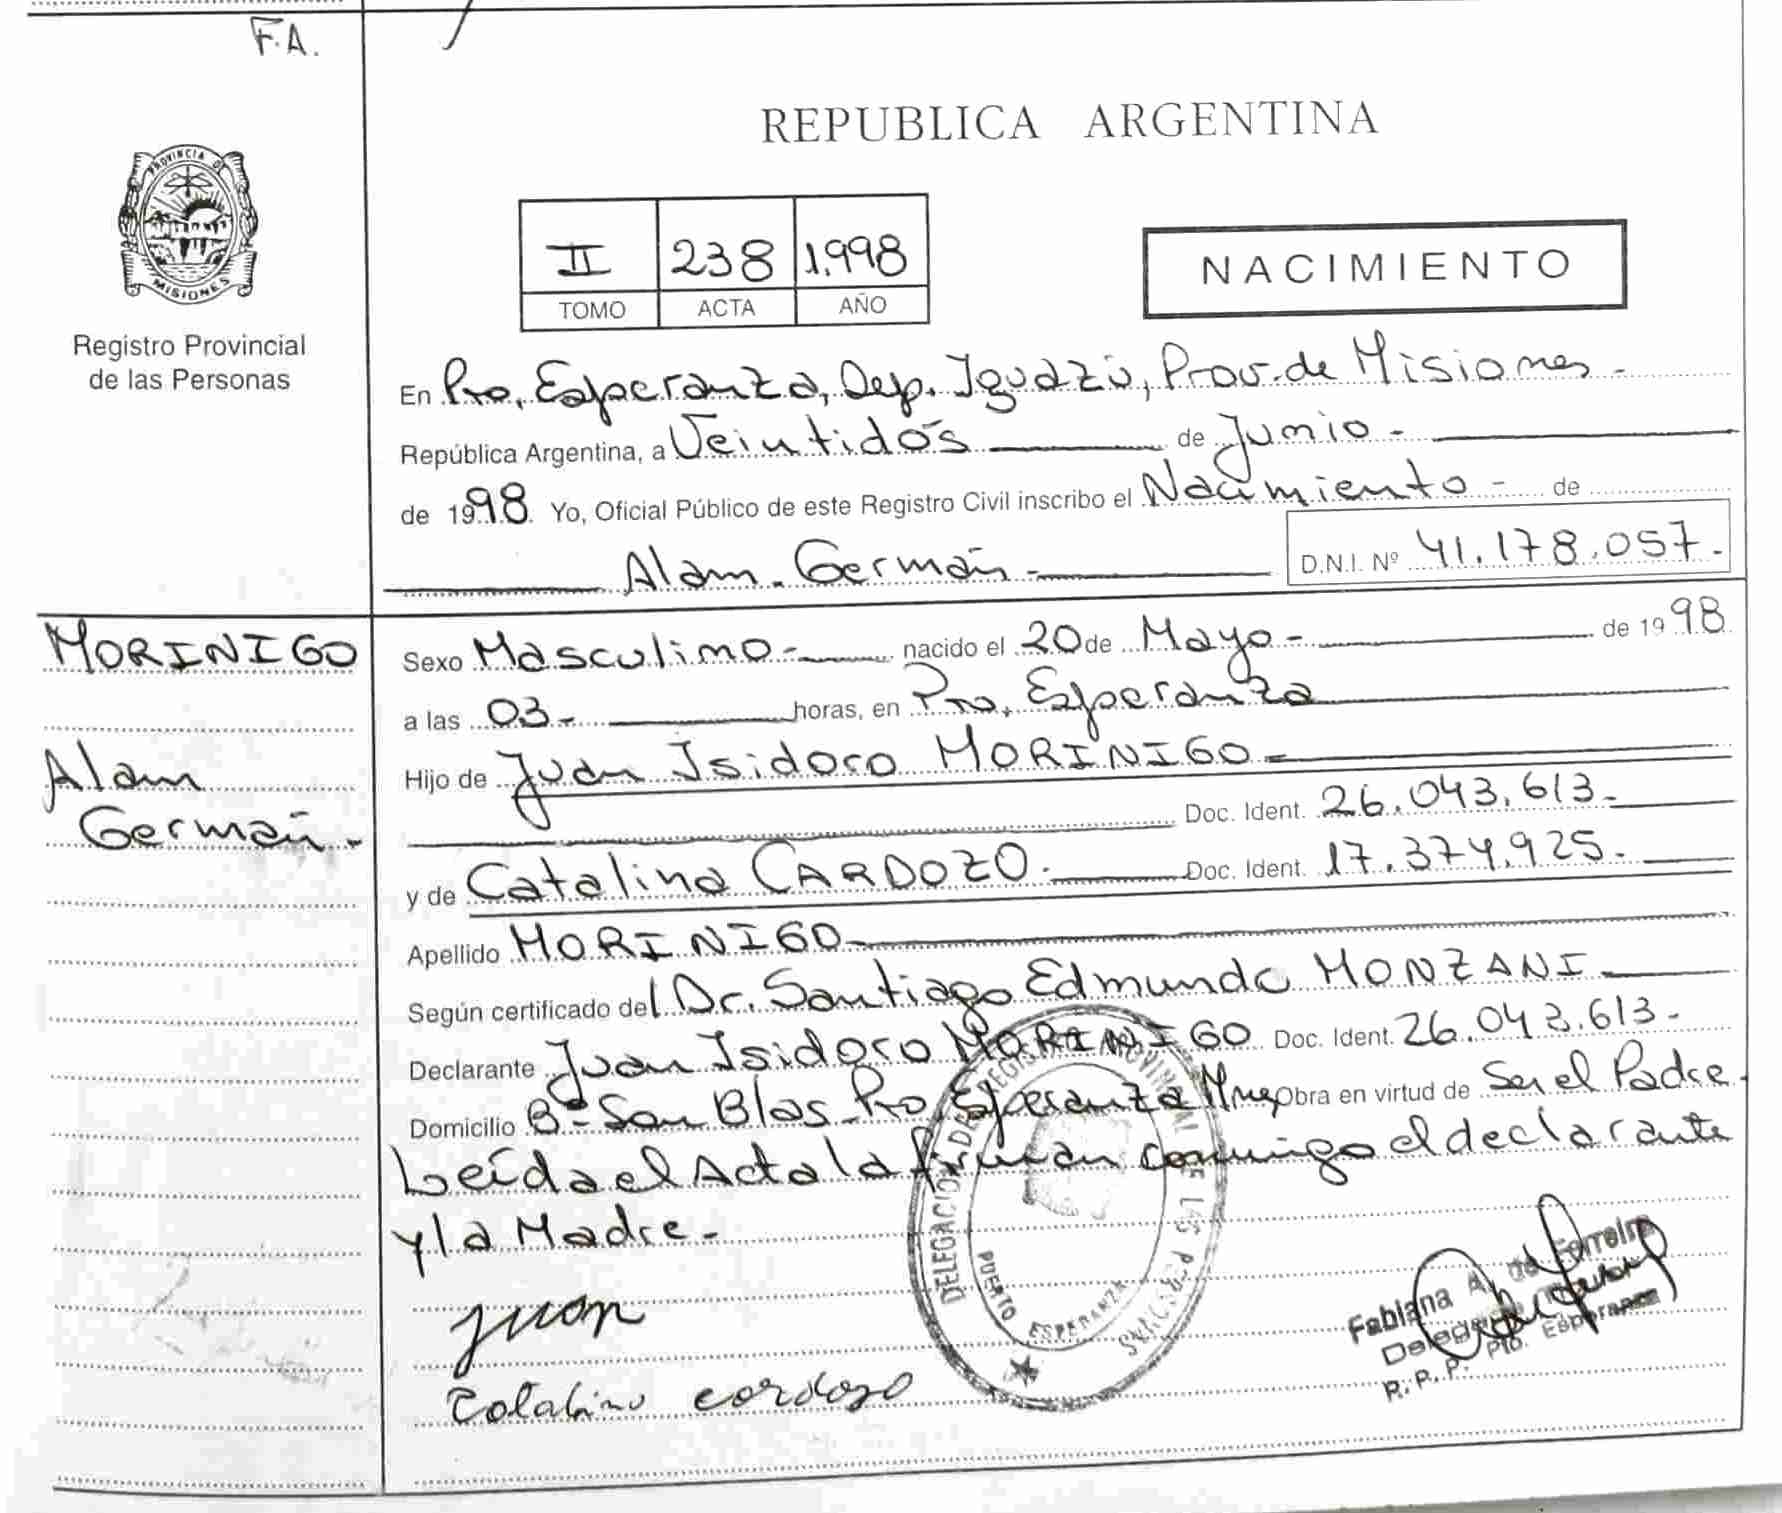 F.A.
PROVINCIA DE
MISIONES
Registro Provincial
de las Personas
REPUBLICA ARGENTINA
II 238 1.998
TOMO ACTA AÑO
NACIMIENTO
En Pto. Esperanza, Dep. Iguazú, Prov. de Misiones -
República Argentina, a Veintidós de Junio -
de 1998. Yo, Oficial Público de este Registro Civil inscribo el Nacimiento - de
Alan Germán - D.N.I. Nº 41.178.057.-
MORINIGO
Alan
Germán -
Sexo Masculino - nacido el 20 de Mayo - de 1998
a las 03 - horas, en Pto. Esperanza
Hijo de Juan Isidoro MORINIGO -
Doc. Ident. 26.043.613 -
y de Catalina CARDOZO. Doc. Ident. 17.374.925 -
Apellido MORINIGO
Según certificado del Dr. Santiago Edmundo MONZANI
Declarante Juan Isidoro MORINIGO Doc. Ident. 26.043.613 -
Domicilio Bº San Blas - Pto. Esperanza Mnes Obra en virtud de Ser el Padre -
Leída el Acta la firman conmigo el declarante
y la Madre -
Juan
Catalina cardozo
DELEGACION DE REGISTRO PROVINCIAL DE LAS PERSONAS
PUERTO ESPERANZA
Fabiana A. de Ferreira
Delegada
R. P. P. Pto. Esperanza